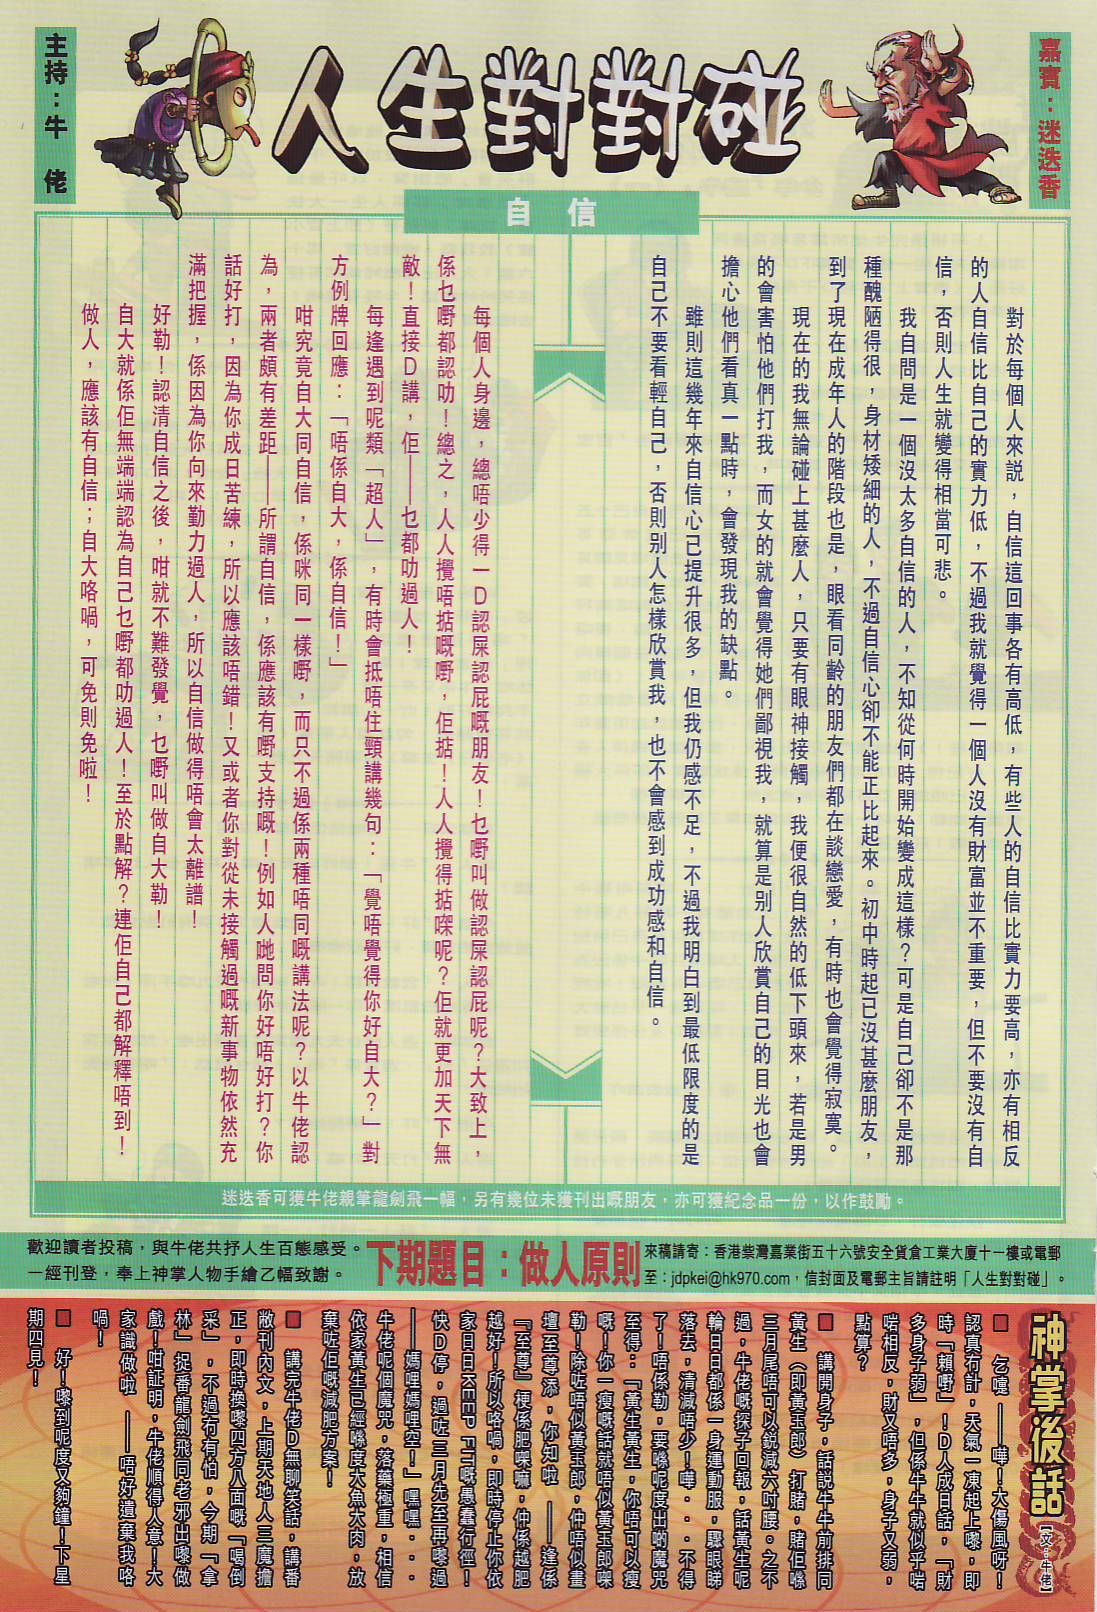 主持：牛佬
人生對對碰
嘉賓：迷迭香
自信
對於每個人來説，自信這回事各有高低，有些人的自信比實力要高，亦有相反
的人自信比自己的實力低，不過我就覺得一個人沒有財富並不重要，但不要沒有自
信，否則人生就變得相當可悲。
我自問是一個沒太多自信的人，不知從何時開始變成這樣？可是自己卻不是那
種醜陋得很，身材矮細的人，不過自信心卻不能正比起來。初中時起已沒甚麼朋友，
到了現在成年人的階段也是，眼看同齡的朋友們都在談戀愛，有時也會覺得寂寞。
現在的我無論碰上甚麼人，只要有眼神接觸，我便很自然的低下頭來，若是男
的會害怕他們打我，而女的就會覺得她們鄙視我，就算是別人欣賞自己的目光也會
擔心他們看真一點時，會發現我的缺點。
雖則這幾年來自信心已提升很多，但我仍感不足，不過我明白到最低限度的是
自己不要看輕自己，否則別人怎樣欣賞我，也不會感到成功感和自信。
每個人身邊，總唔少得一D認屎認屁嘅朋友！乜嘢叫做認屎認屁呢？大致上，
係乜嘢都認叻！總之，人人攪唔掂嘅嘢，佢掂！人人攪得掂㗎呢？佢就更加天下無
敵！直接D講，佢——乜都叻過人！
每逢遇到呢類「超人」，有時會抵唔住頸講幾句：「覺唔覺得你好自大？」對
方例牌回應：「唔係自大，係自信！」
咁究竟自大同自信，係咪同一樣嘢，而只不過係兩種唔同嘅講法呢？以牛佬認
為，兩者頗有差距——所謂自信，係應該有嘢支持嘅！例如人哋問你好唔好打？你
話好打，因為你成日苦練，所以應該唔錯！又或者你對從未接觸過嘅新事物依然充
滿把握，係因為你向來勤力過人，所以自信做得唔會太離譜！
好勒！認清自信之後，咁就不難發覺，乜嘢叫做自大勒！
自大就係佢無端端認為自己乜嘢都叻過人！至於點解？連佢自己都解釋唔到！
做人，應該有自信；自大咯喎，可免則免啦！
迷迭香可獲牛佬親筆龍劍飛一幅，另有幾位未獲刊出嘅朋友，亦可獲紀念品一份，以作鼓勵。
歡迎讀者投稿，與牛佬共抒人生百態感受。
一經刊登，奉上神掌人物手繪乙幅致謝。
下期題目：做人原則
來稿請寄：香港柴灣嘉業街五十六號安全貨倉工業大廈十一樓或電郵
至：jdpkei@hk970.com，信封面及電郵主旨請註明「人生對對碰」。
神掌後話
【文：牛佬】
■乞嚏——嘩！大傷風呀！
認真冇計，天氣一凍起上嚟，即
時「賴嘢」！D人成日話，「財
多身子弱」，但係牛牛就似乎啱
啱相反，財又唔多，身子又弱，
點算？
■講開身子，話説牛牛前排同
黃生（即黃玉郎）打賭，賭佢喺
三月尾唔可以鋭減六吋腰。之不
過，牛佬嘅探子回報，話黃生呢
輪日日都係一身運動服，驟眼睇
落去，清減唔少！嘩．．．不得
了！唔係勒，要喺呢度出啲魔咒
至得：「黃生黃生，你唔可以瘦
嘅！你一瘦嘅話就唔似黃玉郎㗎
勒！除咗唔似黃玉郎，仲唔似畫
壇至尊添，你知啦——逢係
『至尊』梗係肥㗎嘛，仲係越肥
越好！所以咯喎，即時停止你依
家日日KEEP FIT嘅愚蠢行徑！
快D停，過咗三月先至再嚟過
——媽哩媽哩空！」嘿嘿．．．
牛佬呢個魔咒，落藥極重，相信
依家黃生已經喺度大魚大肉，放
棄咗佢嘅減肥方案！
■講完牛佬D無聊笑話，講番
敝刊內文，上期天地人三魔擔
正，即時換嚟四方八面嘅「喝倒
采」，不過冇有怕，今期「拿
林」捉番龍劍飛同老邪出嚟做
戲！咁証明，牛佬順得人意！大
家識做啦——唔好遺棄我咯
喎！
■好！嚟到呢度又夠鐘！下星
期四見！